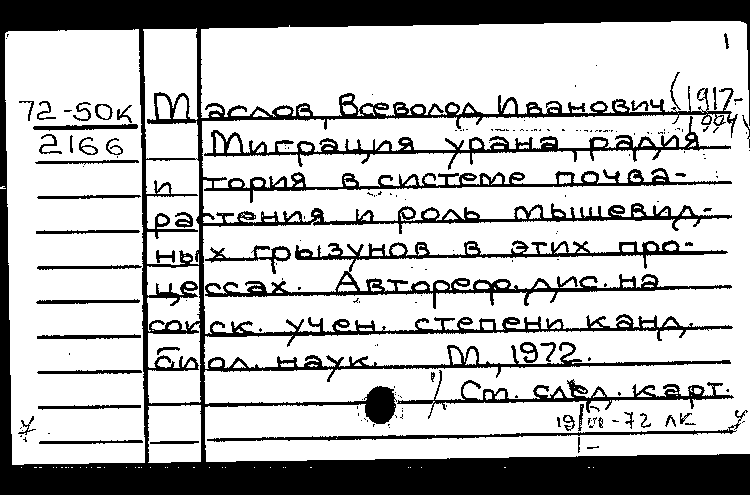 1
72-50к Маслов, Всеволод Иванович (1917-
1994)
2166 Миграция урана, радия
и тория в системе почва-
растения и роль мышевид-
ных грызунов в этих про-
цессах. Автореф. дис. на
соиск. учен. степени канд.
биол. наук. М., 1972.
См. след. карт.
19/VIII-72 ЛК У